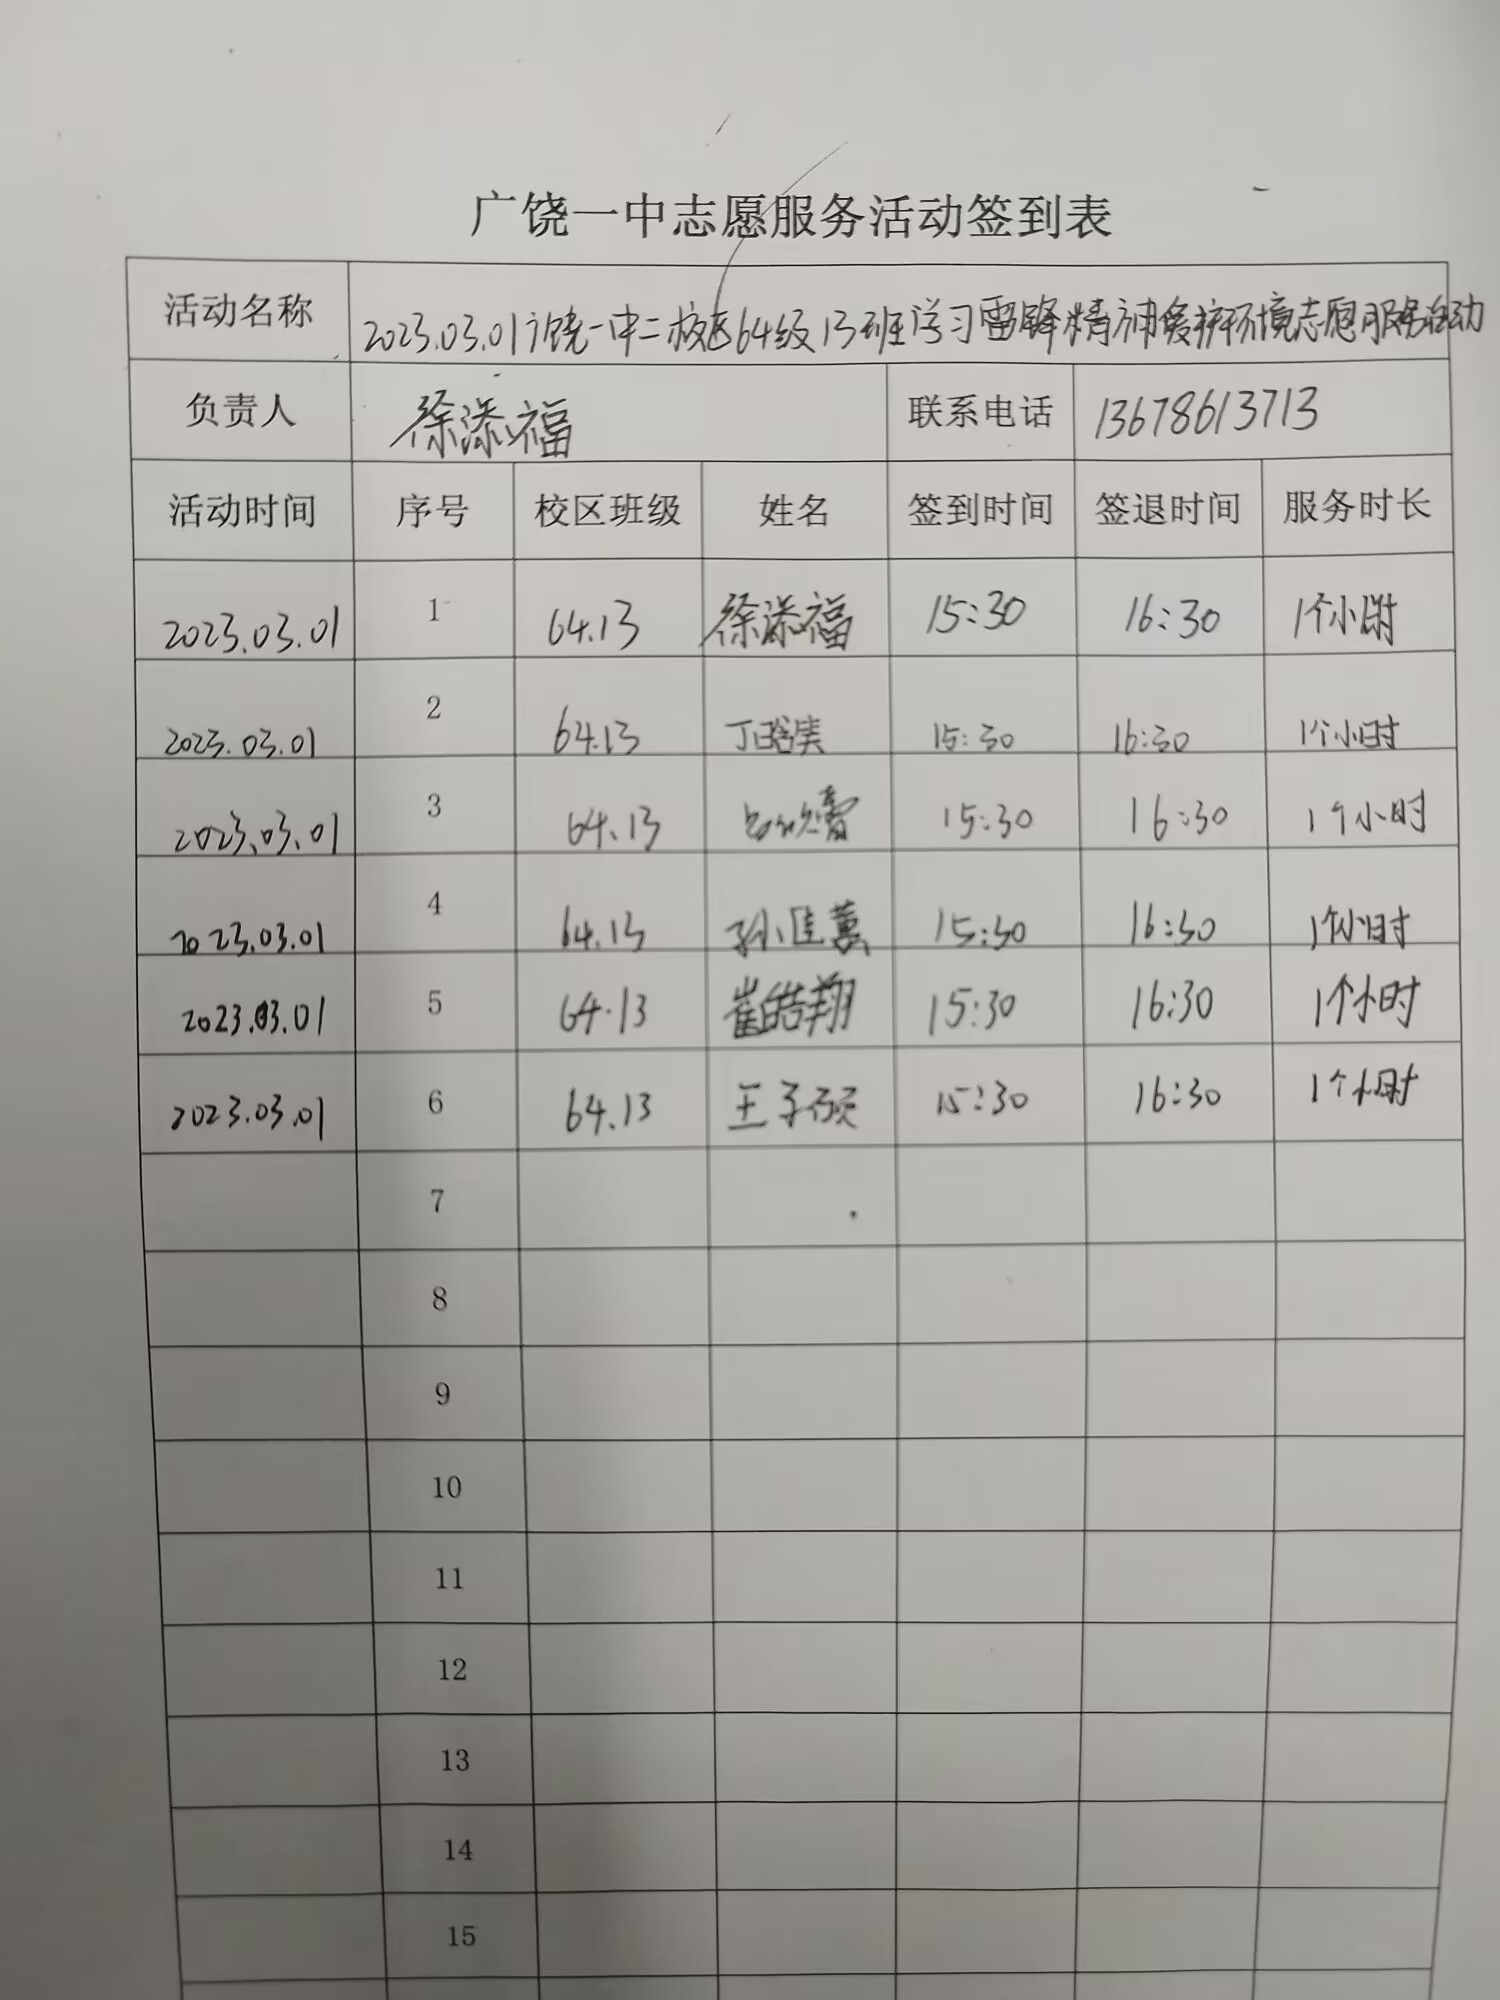 广饶一中志愿服务活动签到表
活动名称 2023.03.01广饶一中二校区64级13班学习雷锋精神爱护环境志愿服务活动
负责人 徐添福 联系电话 13678613713
活动时间 序号 校区班级 姓名 签到时间 签退时间 服务时长
2023.03.01 1 64.13 徐添福 15:30 16:30 1个小时
2023.03.01 2 64.13 丁 15:30 16:30 1个小时
2023.03.01 3 64.13 15:30 16:30 1个小时
2023.03.01 4 64.13 孙佳 15:30 16:30 1个小时
2023.03.01 5 64.13 崔皓翔 15:30 16:30 1个小时
2023.03.01 6 64.13 王子硕 15:30 16:30 1个小时
7
8
9
10
11
12
13
14
15